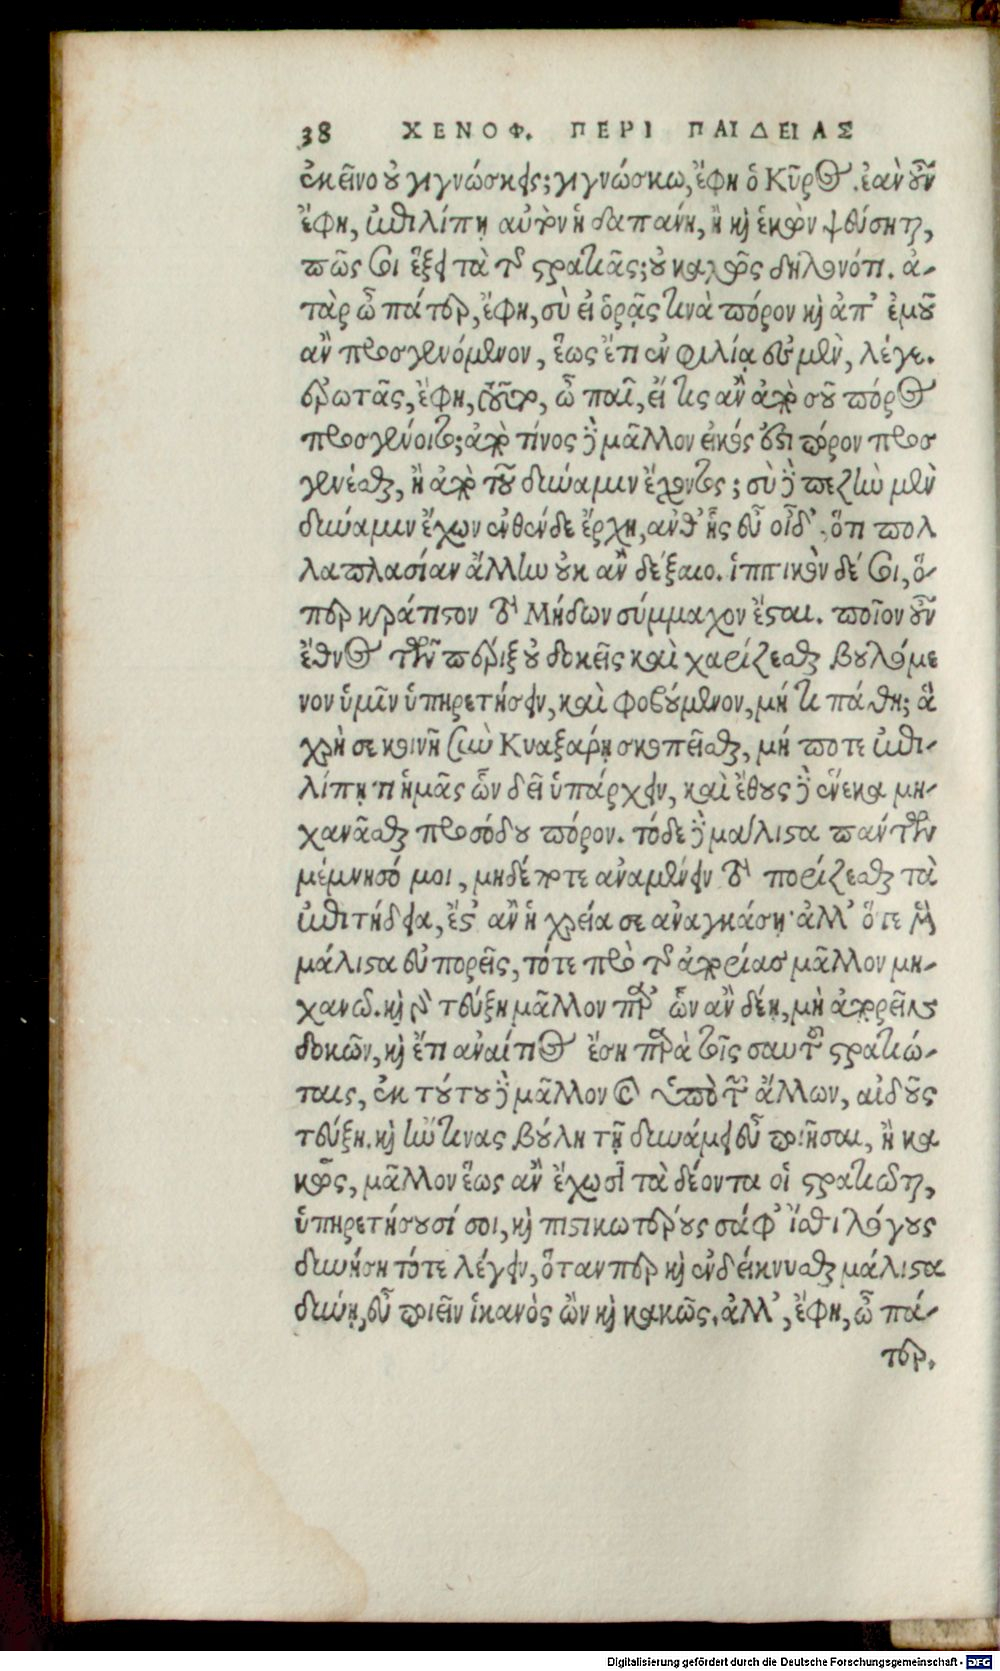 38 ΧΕΝΟΦ. ΠΕΡΙ ΠΑΙΔΕΙΑΣ
ἐκεῖνο οὐ γιγνώσκεις; γιγνώσκω, ἔφη ὁ Κῦρος. ἐὰν οὖν
ἔφη, ἐπιλίπῃ αὐτὸν ἡ δαπάνη, ἢ καὶ ἑκὼν ψεύσηται,
πῶς σοι ἕξει τὰ τῆς στρατιᾶς; οὐ καλῶς δηλονότι. ἀ-
τὰρ ὦ πάτερ, ἔφη, σὺ εἰ ὁρᾷς τινὰ πόρον καὶ ἀπ' ἐμοῦ
ἂν προσγενόμενον, ἕως ἔτι ἐν φιλίᾳ ἐσμὲν, λέγε.
ἐρωτᾷς, ἔφη, τοῦτο, ὦ παῖ, εἴ τις ἂν ἀπὸ σοῦ πόρος
προσγένοιτο; ἀπὸ τίνος δὲ μᾶλλον εἰκός ἐστι πόρον προσ
γενέσθαι, ἢ ἀπὸ τοῦ δύναμιν ἔχοντος; σὺ δὲ πεζὴν μὲν
δύναμιν ἔχων ἐνθένδε ἔρχῃ, ἀνθ' ἧς εὖ οἶδ', ὅτι πολ
λαπλασίαν ἄλλην οὐκ ἂν δέξαιο. ἱππικὸν δέ σοι, ὅ-
περ κράτιστον τῶν Μήδων σύμμαχον ἔσται. ποῖον οὖν
ἔθνος τῶν πέριξ οὐ δοκεῖς καὶ χαρίζεσθαι βουλόμε
νον ὑμῖν ὑπηρετήσειν, καὶ φοβούμενον, μή τι πάθῃ; ἃ
χρὴ σε κοινῇ σὺν Κυαξάρῃ σκοπεῖσθαι, μή ποτε ἐπι-
λίπῃ τι ἡμᾶς ὧν δεῖ ὑπάρχειν, καὶ ἔθους δὲ ἕνεκα μη-
χανᾶσθαι προσόδου πόρον. τόδε δὲ μάλιστα πάντων
μέμνησό μοι, μηδέποτε ἀναμένειν τοῦ πορίζεσθαι τὰ
ἐπιτήδεια, ἔστ' ἂν ἡ χρεία σε ἀναγκάσῃ· ἀλλ' ὅτε
μάλιστα εὐπορεῖς, τότε πρὸ τῆς ἀπορίας μᾶλλον μη-
χανῶ. καὶ γὰρ τεύξῃ μᾶλλον παρ' ὧν ἂν δέῃ, μὴ ἀπορεῖν
δοκῶν, καὶ ἔτι ἀναίτιος ἔσῃ παρὰ τοῖς σαυτοῦ στρατιώ-
ταις, ἐκ τούτου δὲ μᾶλλον καὶ ὑπὸ τῶν ἄλλων, αἰδοῦς
τεύξῃ. καὶ ἤν τινας βούλῃ τῇ δυνάμει εὖ ποιῆσαι, ἢ κα
κῶς, μᾶλλον ἕως ἂν ἔχωσι τὰ δέοντα οἱ στρατιῶται,
ὑπηρετήσουσί σοι, καὶ πιστικωτέρους σάφ' ἴσθι λόγους
δυνήσῃ τότε λέγειν, ὅτανπερ καὶ ἐνδείκνυσθαι μάλιστα
δύνῃ, εὖ ποιεῖν ἱκανὸς ὢν καὶ κακῶς. ἀλλ', ἔφη, ὦ πά-
τερ,
Digitalisierung gefördert durch die Deutsche Forschungsgemeinschaft - DFG